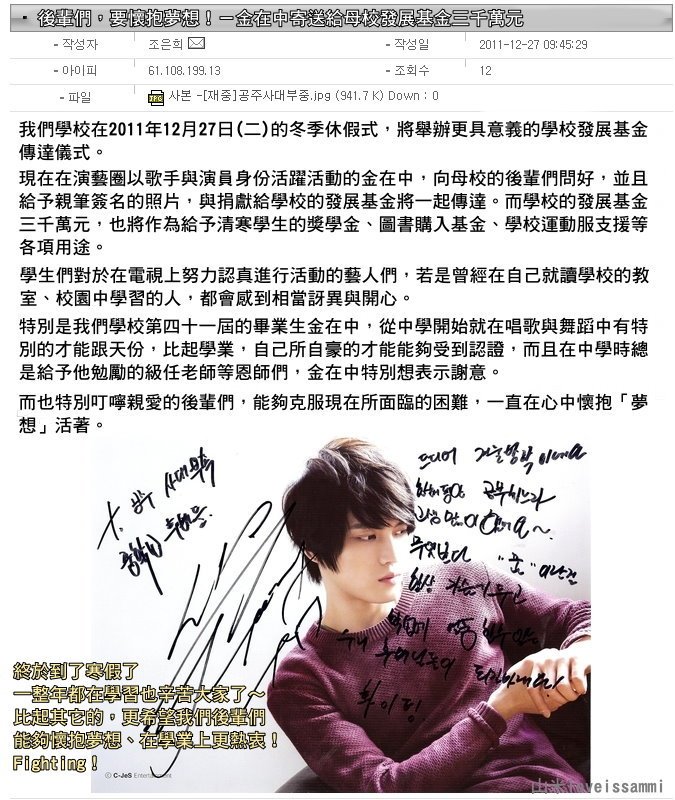 · 後輩們，要懷抱夢想！－金在中寄送給母校發展基金三千萬元
- 작성자 조은희 - 작성일 2011-12-27 09:45:29
- 아이피 61.108.199.13 - 조회수 12
- 파일 사본 -[재중]공주사대부중.jpg (941.7 K) Down : 0
我們學校在2011年12月27日(二)的冬季休假式，將舉辦更具意義的學校發展基金
傳達儀式。
現在在演藝圈以歌手與演員身份活躍活動的金在中，向母校的後輩們問好，並且
給予親筆簽名的照片，與捐獻給學校的發展基金將一起傳達。而學校的發展基金
三千萬元，也將作為給予清寒學生的獎學金、圖書購入基金、學校運動服支援等
各項用途。
學生們對於在電視上努力認真進行活動的藝人們，若是曾經在自己就讀學校的教
室、校園中學習的人，都會感到相當訝異與開心。
特別是我們學校第四十一屆的畢業生金在中，從中學開始就在唱歌與舞蹈中有特
別的才能跟天份，比起學業，自己所自豪的才能能夠受到認證，而且在中學時總
是給予他勉勵的級任老師等恩師們，金在中特別想表示謝意。
而也特別叮嚀親愛的後輩們，能夠克服現在所面臨的困難，一直在心中懷抱「夢
想」活著。
드디어 겨울방학이네요
공주 사대부속
무엇보다 "꿈"
항상 가슴에
화이팅!
終於到了寒假了
一整年都在學習也辛苦大家了～
比起其它的，更希望我們後輩們
能夠懷抱夢想、在學業上更熱衷！
Fighting！
© C-JeS Entertainment